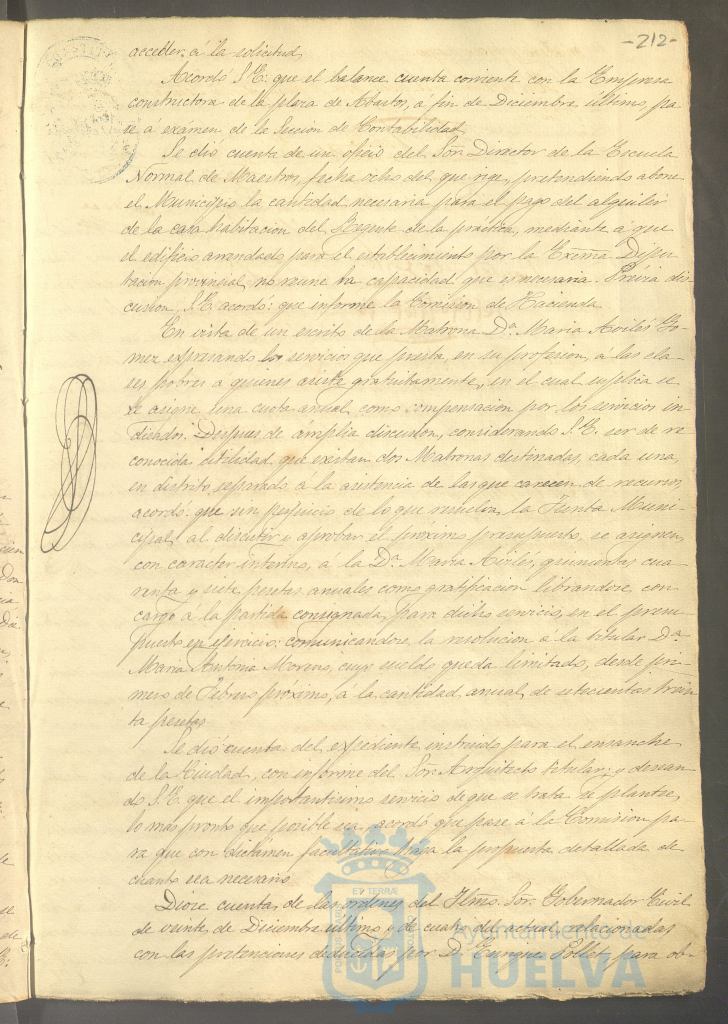 -212-
acceder, á la solicitud.
Acordó S.E. que el balance cuenta corriente con la Empresa
constructora de la plaza de Abastos, á fin de Diciembre último, pa-
se á examen de la Sección de Contabilidad.
Se dió cuenta de un oficio del Sor. Director de la Escuela
Normal de Maestros, fecha ocho del que rige, pretendiendo abone
el Municipio la cantidad necesaria para el pago del alquiler
de la casa habitacion del Regente de la práctica, mediante á que
el edificio arrendado para el establecimiento por la Excma. Dipu-
tacion provincial, no reune la capacidad que es necesaria. Previa dis
cusion, S.E. acordó: que informe la Comision de Hacienda.
En vista de un escrito de la Matrona Dª. Maria Aviles Go-
mez expresando los servicios que presta, en su profesion, a las cla-
ses pobres a quienes asiste gratuitamente, en el cual suplica se
le asigne una cuota anual, como compensacion por los servicios in
dicados. Despues de ámplia discusion, considerando S.E. ser de re
conocida utilidad que existan dos Matronas destinadas, cada una,
en distrito separado, a la asistencia de las que carecen de recursos,
acordó: que sin perjuicio de lo que resuelva la Junta Muni-
cipal, al discutir y aprobar el próximo presupuesto, se asignen,
con caracter interino, á la Dª. Maria Avilés, quinientas cua
renta y siete pesetas anuales como gratificacion librandose, con
cargo á la partida consignada, para dicho servicio, en el presu-
puesto en ejercicio: comunicandose, la resolucion a la titular Dª
Maria Antonia Moreno, cuyo sueldo queda limitado, desde pri-
mero de Febrero próximo, á la cantidad anual, de setecientas trein
ta pesetas.
Se dió cuenta del expediente instruido para el ensanche
de la Ciudad, con informe del Sor. Arquitecto titular; y desean-
do S.E. que el importantisimo servicio de que se trata se plantee,
lo mas pronto que posible sea, acordó que pase á la Comision pa-
ra que con dictamen facultativo haga la propuesta detallada de
cuanto sea necesario.
Diose cuenta, de las ordenes del Iltmo. Sor. Gobernador Civil
de veinte, de Diciembre último y de cuatro del actual, relacionadas
con las pretenciones deducidas por D. Enrique Pollet, para ob-
Ayuntamiento de
HUELVA